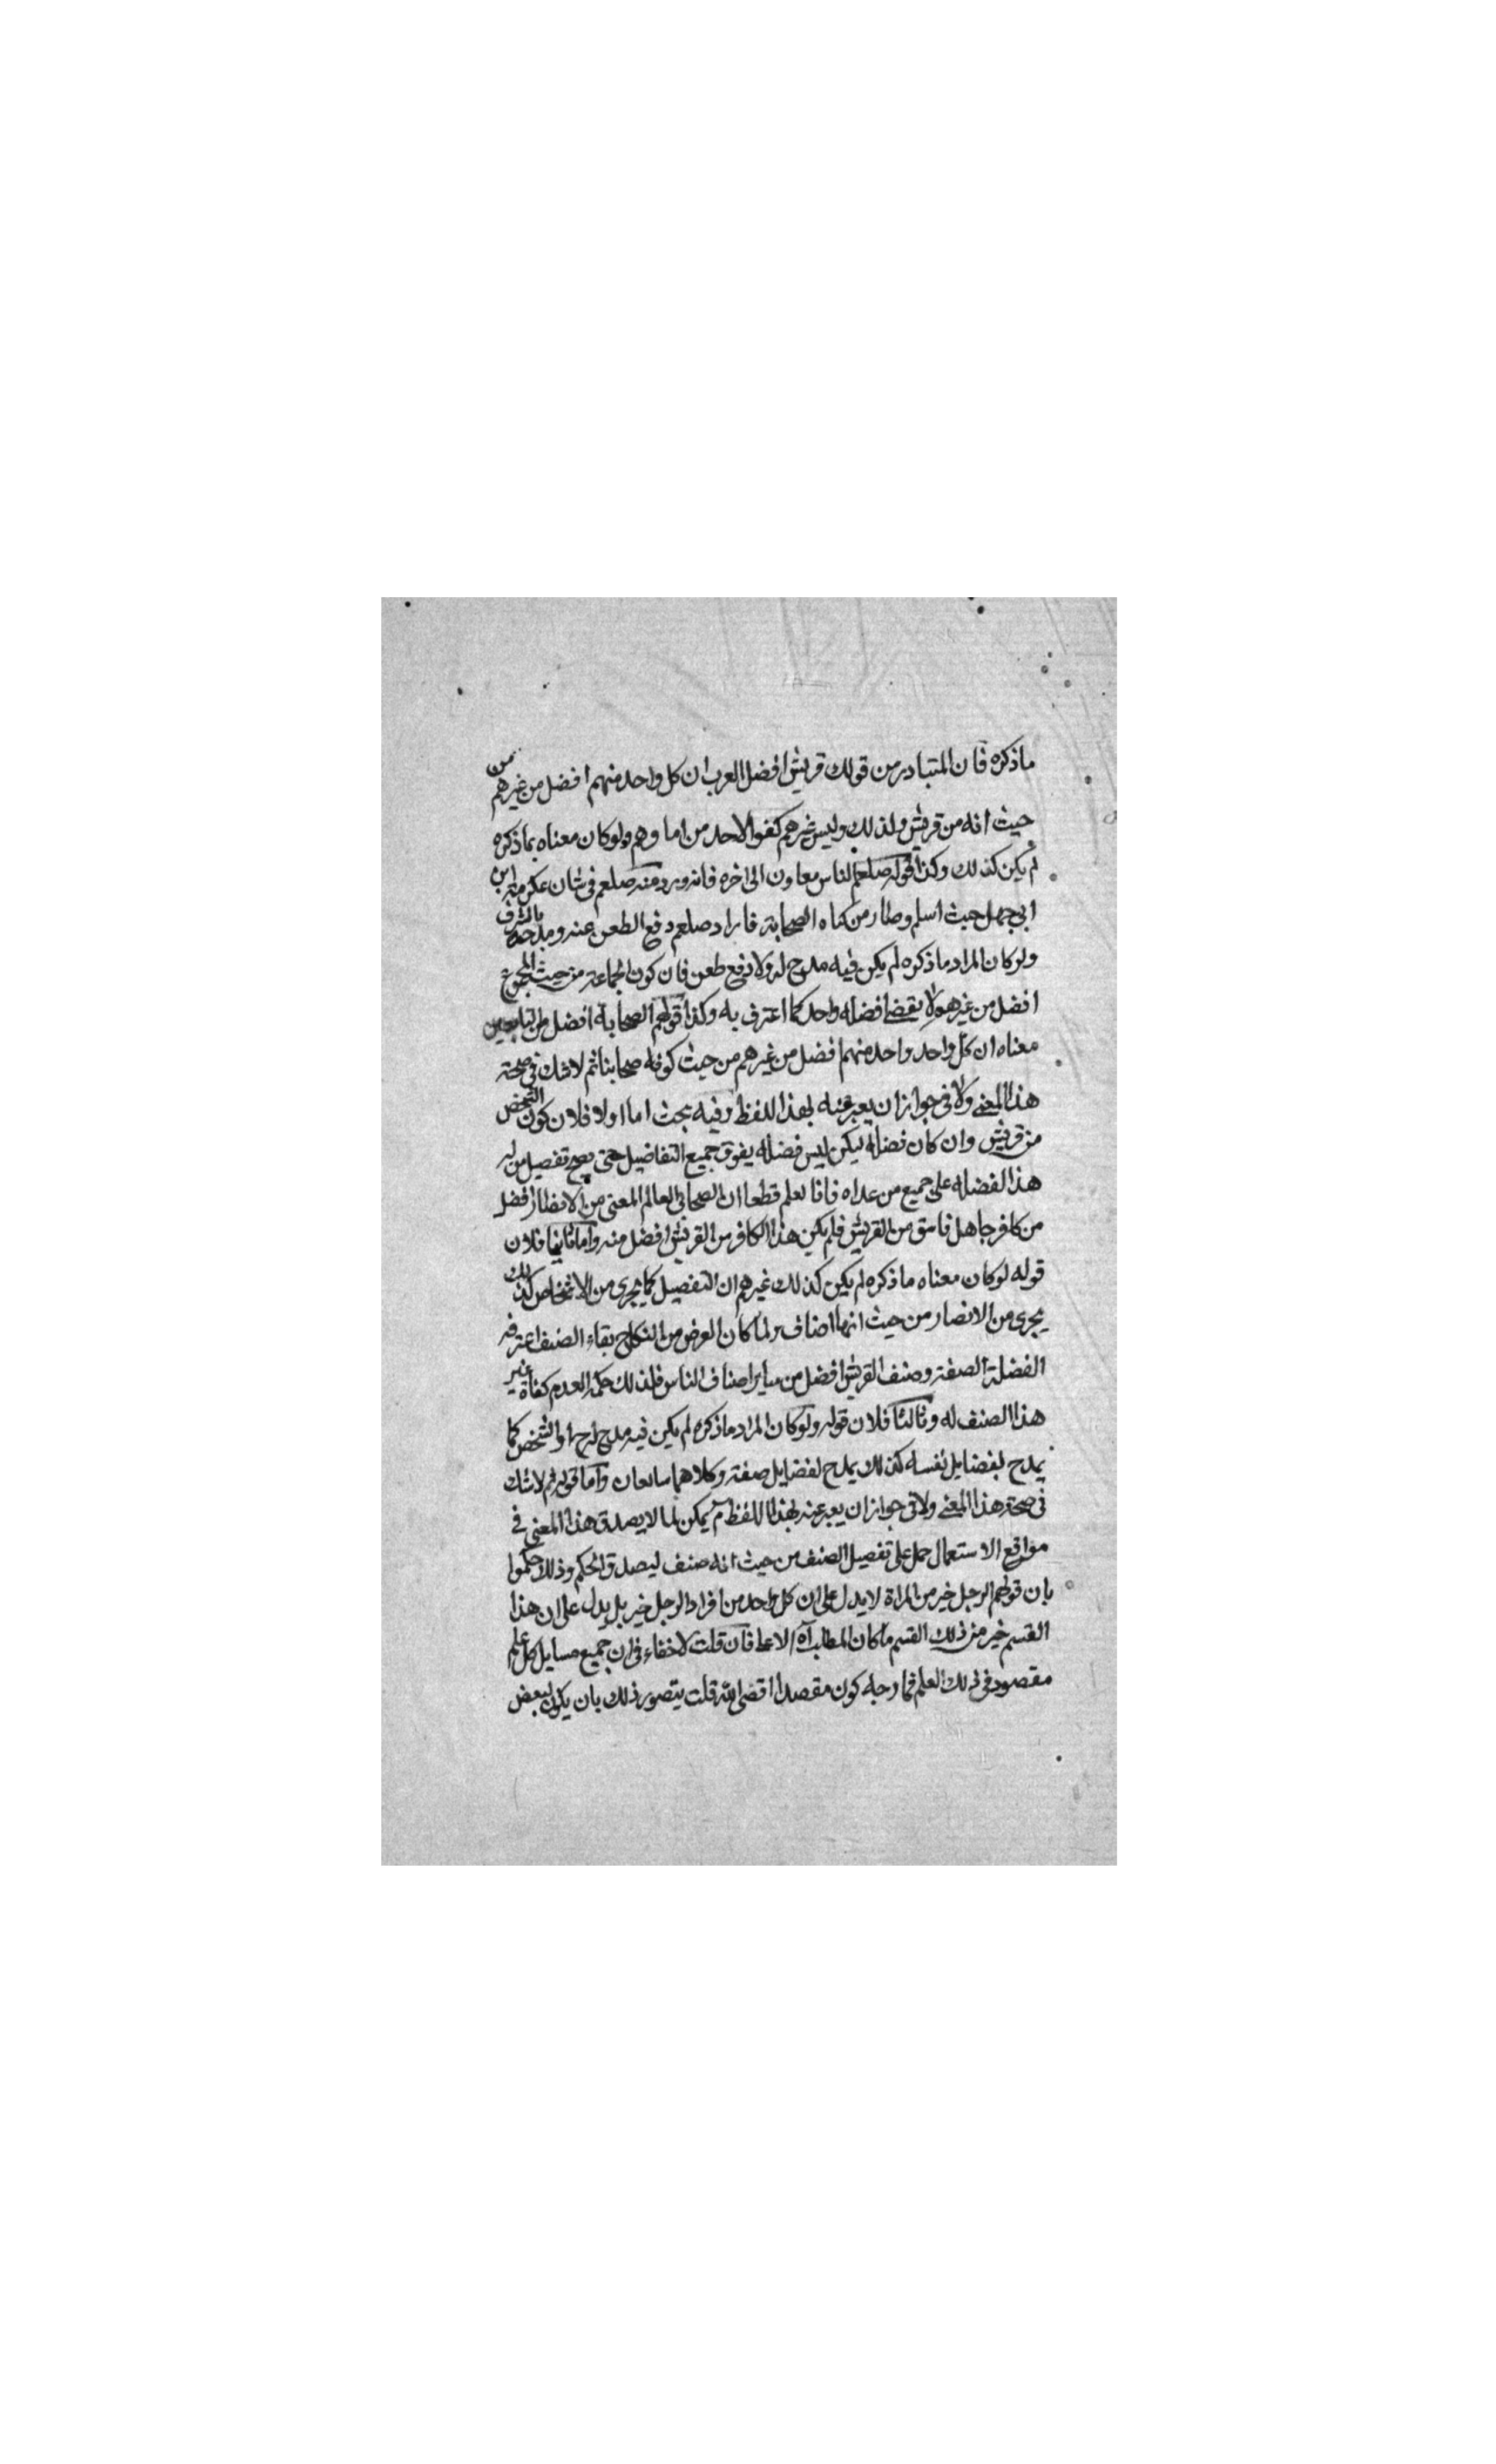 ماذكره فان المتبادر من قولك قريش افضل العرب ان كل واحد منهم افضل من غيرهم من
حيث انه من قريش ولذلك وليس غيرهم كفوا لاحد من اما وهم ولوكان معناه بماذكره
لم يكن كذلك وكذا قوله صلعم الناس معاون الى اخره فانه ورد منه صلعم فى شان عكرمة ابن
ابى جهل حيث اسلم وصار من الصحابة فاراد صلعم دفع الطعن عنه ومدحه بالشرف
ولوكان المراد ماذكره لم يكن فيه مدح له ولا دفع طعن فان كون الجماعة من حيث المجموع
افضل من غيرهم لا يقضى افضله واحد كما اعترف به وكذا قولهم الصحابة افضل من التابعين
معناه ان كل واحد واحد منهم افضل من غيرهم من حيث كونه صحابنا ثم لاشك فى صحته
هذا المعنى ولا فى جواز ان يعبر عنه بهذا اللفظ وفيه بحث اما اولا فلان كون الشخص
من قريش وان كان فضله ليكن ليس فضله يفوق جميع التفاضيل حتى يصح تفصيل من له
هذا الفضله على جميع من عداه فانا نعلم قطعا ان الصحابى العالم المعنى من الانصار افضل
من كافر جاهل فاسق من القريش فلم يكن هذا الكافر من القريش افضل منه واما ثانيا فلان
قوله لوكان معناه ماذكره لم يكن كذلك غيرهم ان التفصيل كما يجرى من الاشخاص كذلك
يجرى من الانصار من حيث انها اصناف ولما كان العرض من النكاح بقاء الصنف اعترفه
الفضلة الصفة وصنف القريش افضل من ساير اصناف الناس فلذلك حكم العدم كفاة غير
هذا الصنف له وثالثا فلان قوله ولوكان المراد ماذكره لم يكن فيه مدح له والشخص كما
يمدح بفضايل نفسه كذلك يمدح بفضايل صفته وكلاهما سابعان واما قوله ثم لاشك
فى صحة هذا المعنى ولا فى جواز ان يعبر عنه بهذا اللفظ م يمكن لما لا يصدق هذا المعنى فى
مواقع الاستعمال حمل على تفصيل الصنف من حيث انه صنف ليصدق الحكم وذلك حكموا
بان قولهم الرجل خير من المراة لا يدل على ان كل واحد من افراد الرجل خير بل يدل على ان هذا
القسم خير من ذلك القسم ماكان المطالب الاعلى فان قلت لاخفاء فى ان جميع مسايل كل علم
مقصود فى ذلك العلم فما وجه كون مقصدا اقصى له قلت يتصور ذلك بان يكون لبعض